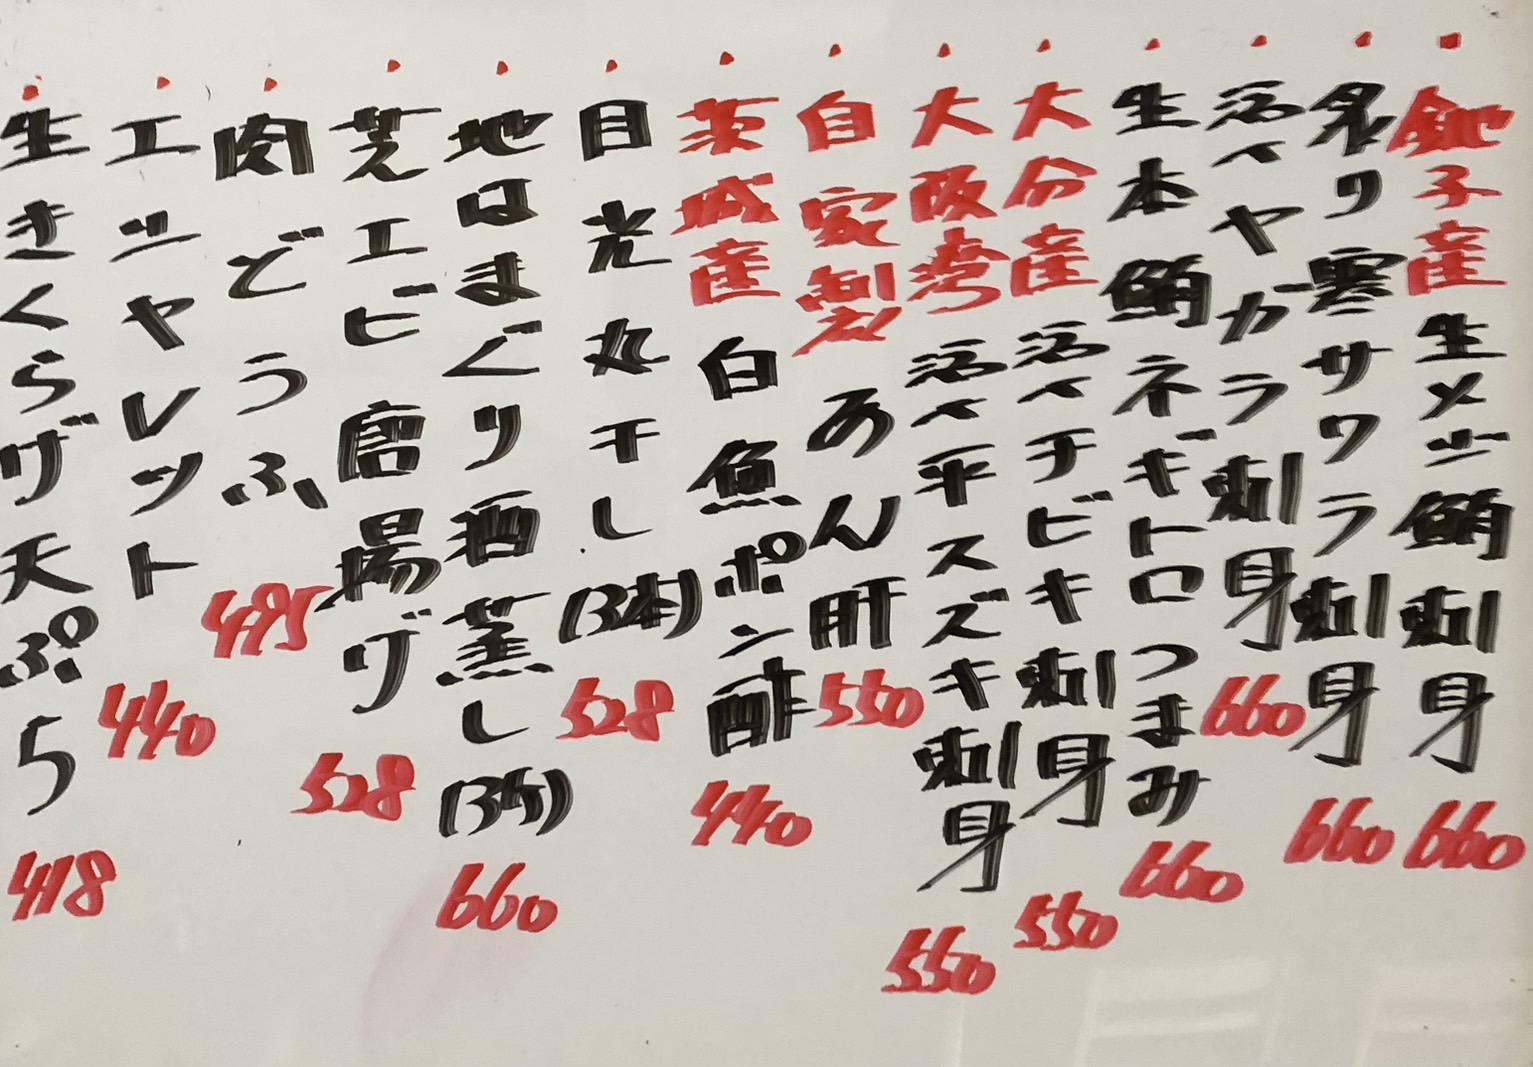 ・銚子産生メジ鮪刺身 660
・炙り寒サワラ刺身 660
・活〆ヤガラ刺身 660
・生本鮪ネギトロつまみ 660
・大分産活〆チビキ刺身 550
・大阪湾活〆平スズキ刺身 550
・自家製あん肝 550
・茨城産白魚ポン酢 440
・目光丸干し(3本) 528
・地はまぐり酒蒸し(3ケ) 660
・芝エビ唐揚げ 528
・肉どうふ 495
・エシャレット 440
・生きくらげ天ぷら 418